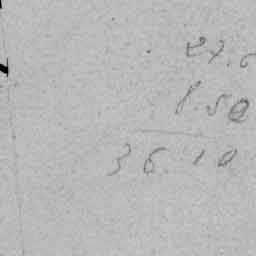 27.6
8.50
36.10